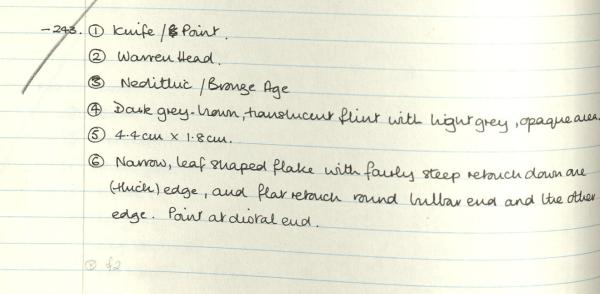 -243. ① Knife / Point.
② Warren Head.
③ Neolithic / Bronze Age
④ Dark grey-brown, translucent flint with light grey, opaque area.
⑤ 4.4cm x 1.8cm.
⑥ Narrow, leaf shaped flake with fairly steep retouch down one
(thick) edge, and flat retouch round bulbar end and the other
edge. Point at distal end.
⑦ £2